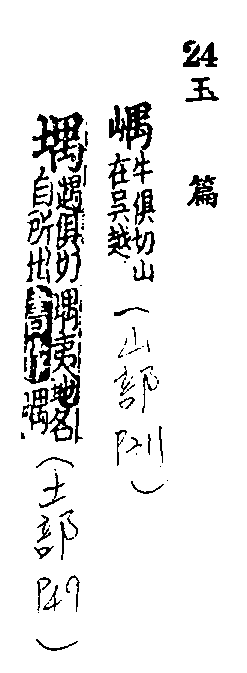 24
玉篇
嵎牛俱切山
在吳越(山部P211)
堣遇俱切堣夷地名
日所出書作嵎(土部P49)